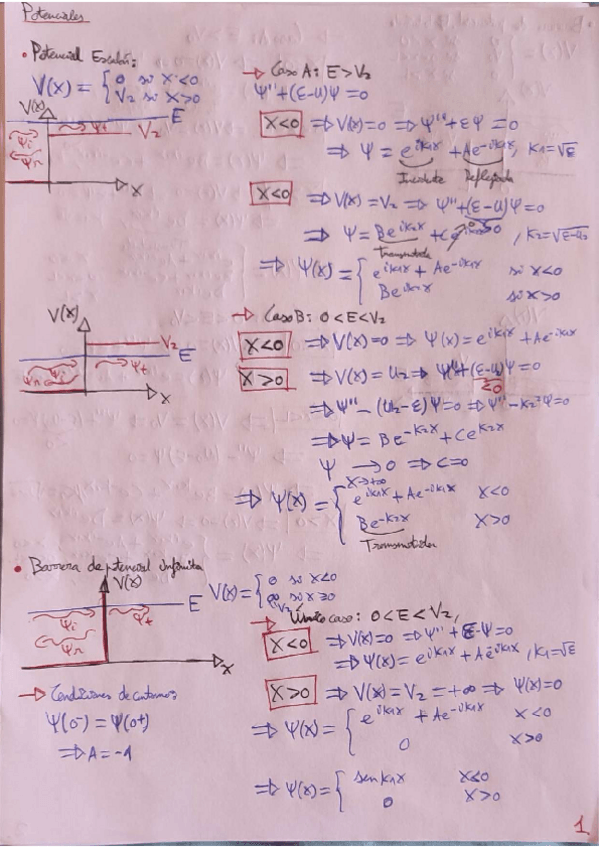 Potenciales
• Potencial Escalón:
V(x) = { 0 si x<0
V₂ si x>0
→ Caso A: E>V₂
Ψ'' + (ε-u)Ψ = 0
V(x)
E
V₂
Ψi
Ψt
Ψr
x
x<0 ⇒ V(x)=0 ⇒ Ψ'' + εΨ = 0
⇒ Ψ = e^{ik₁x} + Ae^{-ik₁x}, k₁=√ε
Incidente Reflejada
x<0 ⇒ V(x)=V₂ ⇒ Ψ''+(ε-u)Ψ=0
⇒ Ψ = Be^{ik₂x} + , k₂=√ε-u₂
Transmitida
⇒ Ψ(x) = { e^{ik₁x} + Ae^{-ik₁x} si x<0
Be^{ik₂x} si x>0
V(x)
V₂
E
Ψr Ψi
Ψt
x
→ Caso B: 0<E<V₂
x<0 ⇒ V(x)=0 ⇒ Ψ(x) = e^{ik₁x} + Ae^{-ik₁x}
x>0 ⇒ V(x)=u₂ ⇒ Ψ''+(ε-u)Ψ=0
<0
⇒ Ψ'' - (u₂-ε)Ψ=0 ⇒ Ψ''-k₂²Ψ=0
⇒ Ψ = Be^{-k₂x} + Ce^{k₂x}
Ψ → 0 ⇒ C=0
x→+∞
⇒ Ψ(x) = { e^{ik₁x} + Ae^{-ik₁x} x<0
Be^{-k₂x} x>0
Transmitida
• Barrera de potencial Infinita
V(x) = { 0 si x<0
∞ si x>0
V₂
V(x)
E
Ψi
Ψt
Ψr
x
→ Único caso: 0<E<V₂,
x<0 ⇒ V(x)=0 ⇒ Ψ'' + ε-Ψ=0
⇒ Ψ(x) = e^{ik₁x} + Ae^{-ik₁x}, k₁=√ε
→ Condiciones de contorno:
Ψ(0⁻) = Ψ(0⁺)
⇒ A = -1
x>0 ⇒ V(x)=V₂=+∞ ⇒ Ψ(x)=0
⇒ Ψ(x) = { e^{ik₁x} + Ae^{-ik₁x} x<0
0 x>0
⇒ Ψ(x) = { sen k₁x x<0
0 x>0
1